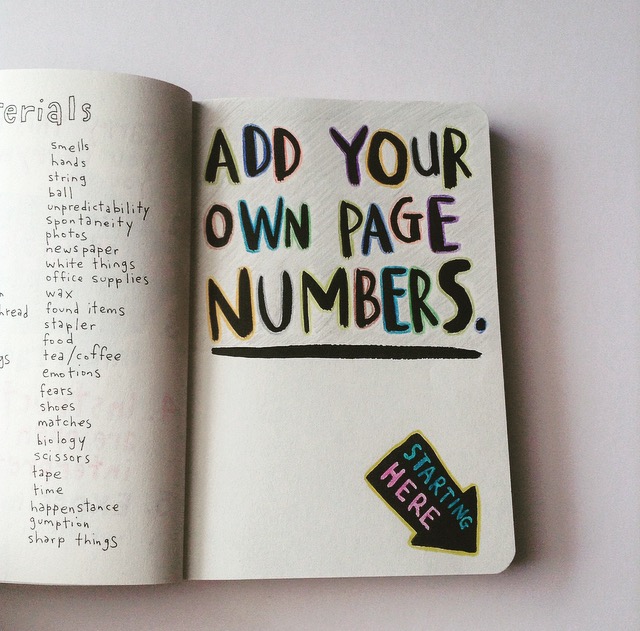 smells
hands
string
ball
unpredictability
spontaneity
photos
newspaper
white things
office supplies
wax
found items
stapler
food
tea/coffee
emotions
fears
shoes
matches
biology
scissors
tape
time
happenstance
gumption
sharp things
ADD YOUR
OWN PAGE
NUMBERS.
STARTING
HERE